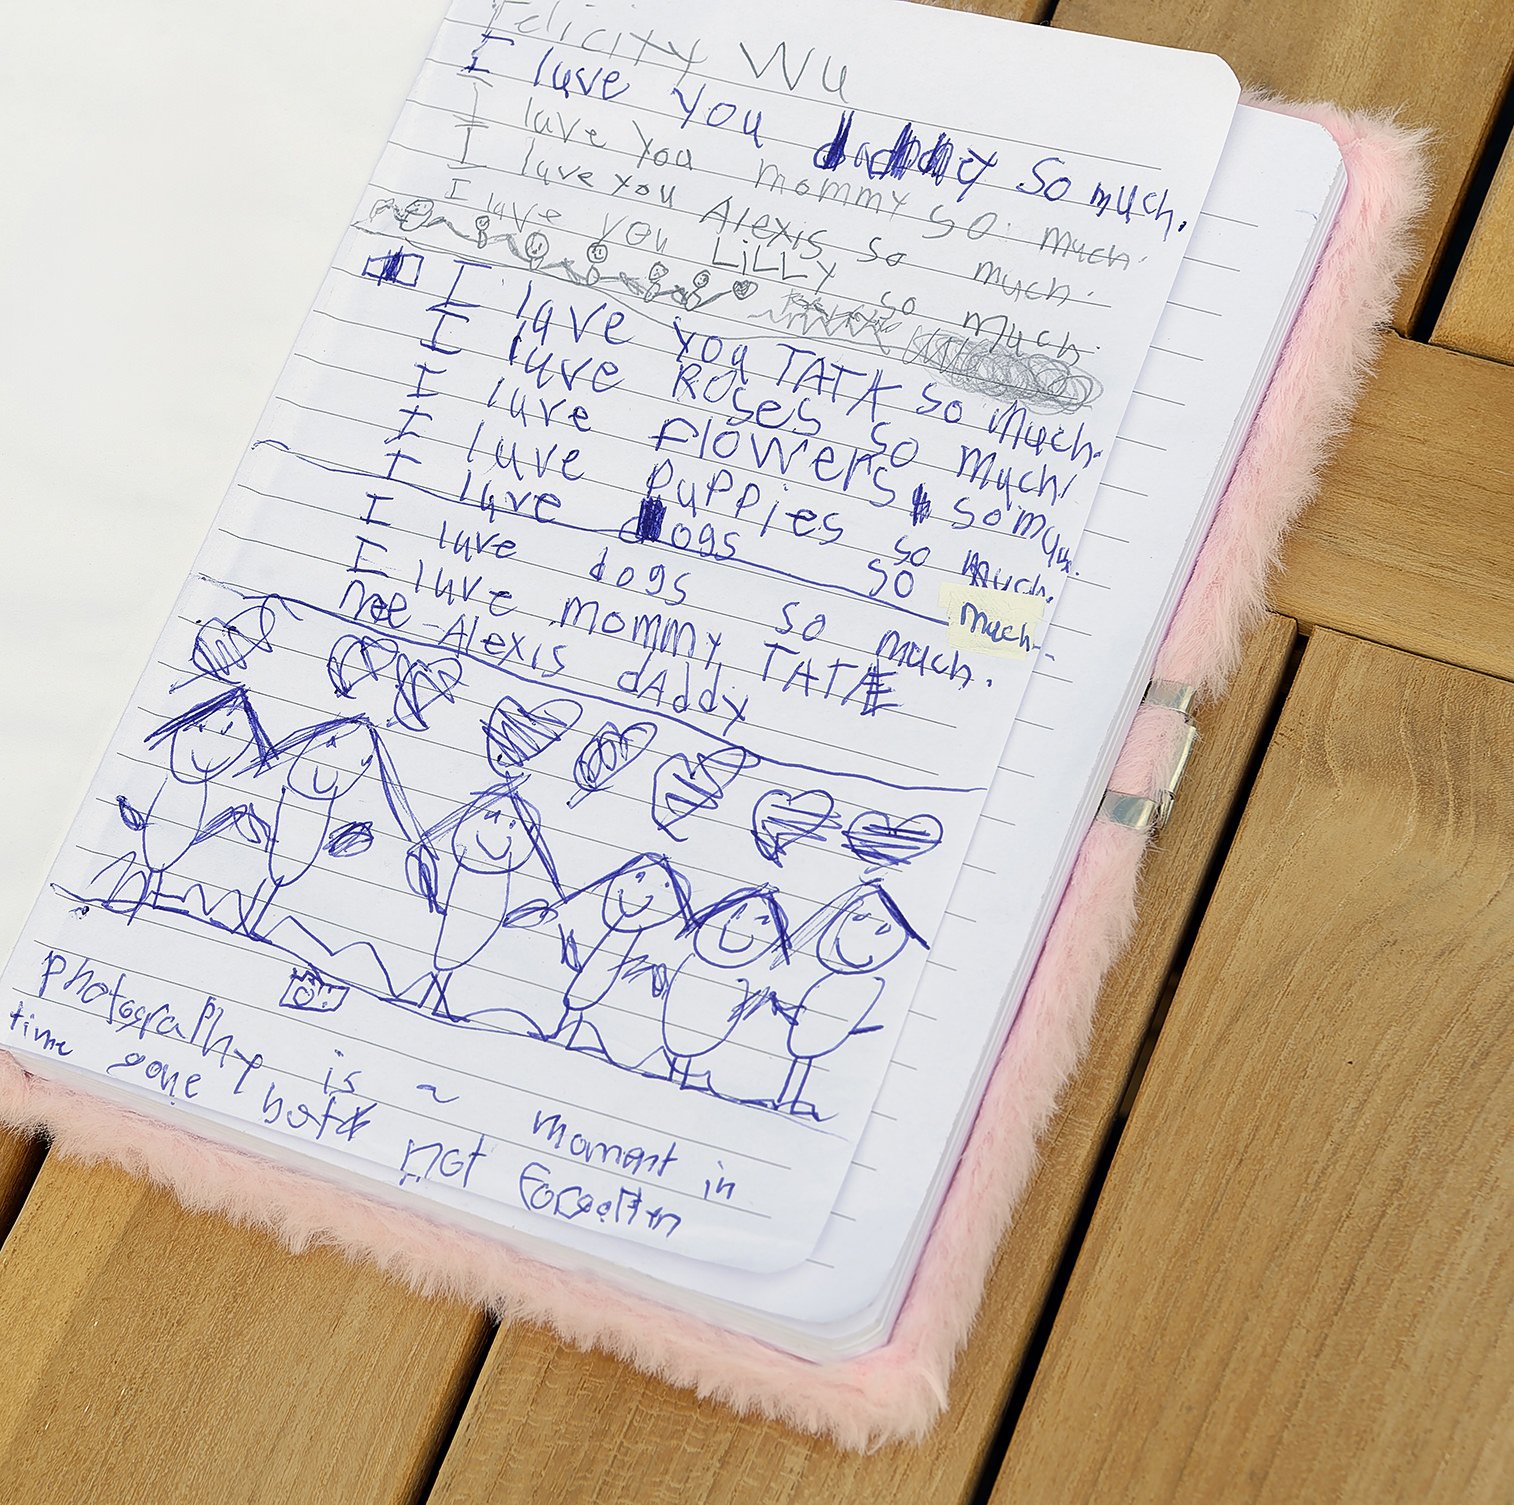 Felicity Wu
I luve you daddy so much.
I luve you mommy so much.
I luve you Alexis so much.
I luve you LiLLy so much.
I luve you TATA so much.
I luve Roses so much!
I luve flowers so much.
I luve puppies so much.
I luve dogs so much.
I luve dogs so much.
I luve mommy TATA
me Alexis dAddy
photography is a moment in
time gone but not forgettn